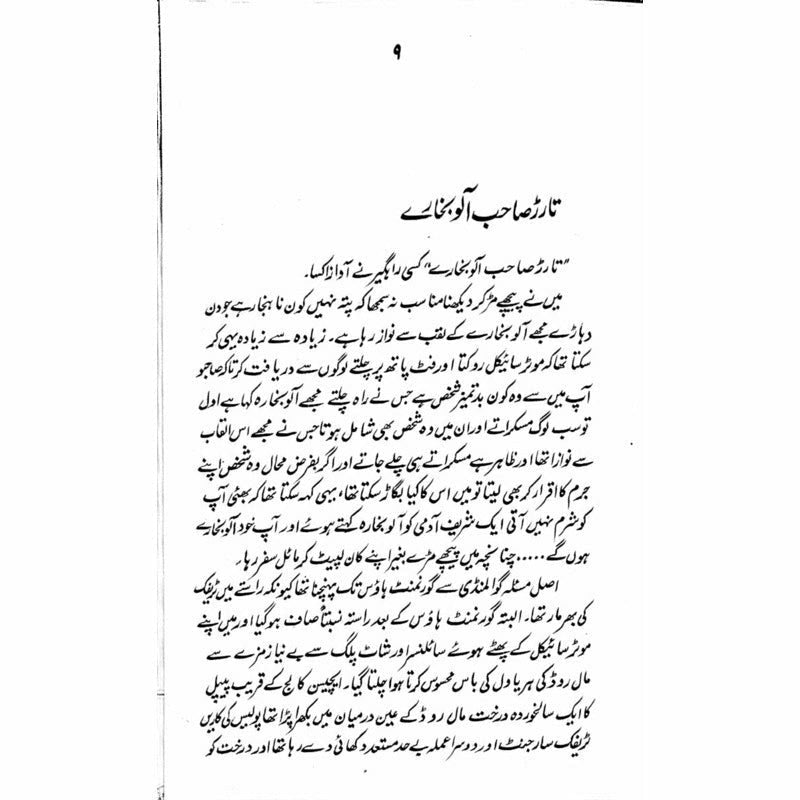 ۹
تارڑ صاحب آلو بخارے
"تارڑ صاحب آلو بخارے" کسی راہگیر نے آوازہ کسا۔
میں نے پیچھے مڑ کر دیکھنا مناسب نہ سمجھا کہ پتہ نہیں کون ناہنجار ہے جو دن
دہاڑے مجھے آلو بخارے کے لقب سے نواز رہا ہے۔ زیادہ سے زیادہ یہی کر
سکتا تھا کہ موٹر سائیکل روکتا اور فٹ پاتھ پر چلتے لوگوں سے دریافت کرتا کہ صاحبو
آپ میں سے وہ کون بدتمیز شخص ہے جس نے راہ چلتے مجھے آلو بخارہ کہا ہے اول
تو سب لوگ مسکراتے اور ان میں وہ شخص بھی شامل ہوتا جس نے مجھے اس القاب
سے نوازا تھا اور ظاہر ہے مسکراتے ہی چلے جاتے اور اگر بفرض محال وہ شخص اپنے
جرم کا اقرار کر بھی لیتا تو میں اس کا کیا بگاڑ سکتا تھا، یہی کہہ سکتا تھا کہ بھئی آپ
کو شرم نہیں آتی ایک شریف آدمی کو آلو بخارہ کہتے ہوئے اور آپ خود آلو بخارے
ہوں گے ..... چنانچہ میں پیچھے مڑے بغیر اپنے کان لپیٹ کر مائل سفر رہا۔
اصل مسئلہ گوالمنڈی سے گورنمنٹ ہاؤس تک پہنچنا تھا کیونکہ راستے میں ٹریفک
کی بھرمار تھا۔ البتہ گورنمنٹ ہاؤس کے بعد راستہ نسبتاً صاف ہو گیا اور میں اپنے
موٹر سائیکل کے پھٹے ہوئے سائلنسر اور شاٹ پلگ سے بے نیاز مزے سے
مال روڈ کی ہریاول کی باس محسوس کرتا ہوا چلتا گیا۔ ایچیسن کالج کے قریب پیپل
کا ایک سالخوردہ درخت مال روڈ کے عین درمیان میں بکھرا پڑا تھا پولیس کی کاریں
ٹریفک سارجنٹ اور دوسرا عملہ بے حد مستعد دکھائی دے رہا تھا اور درخت کو